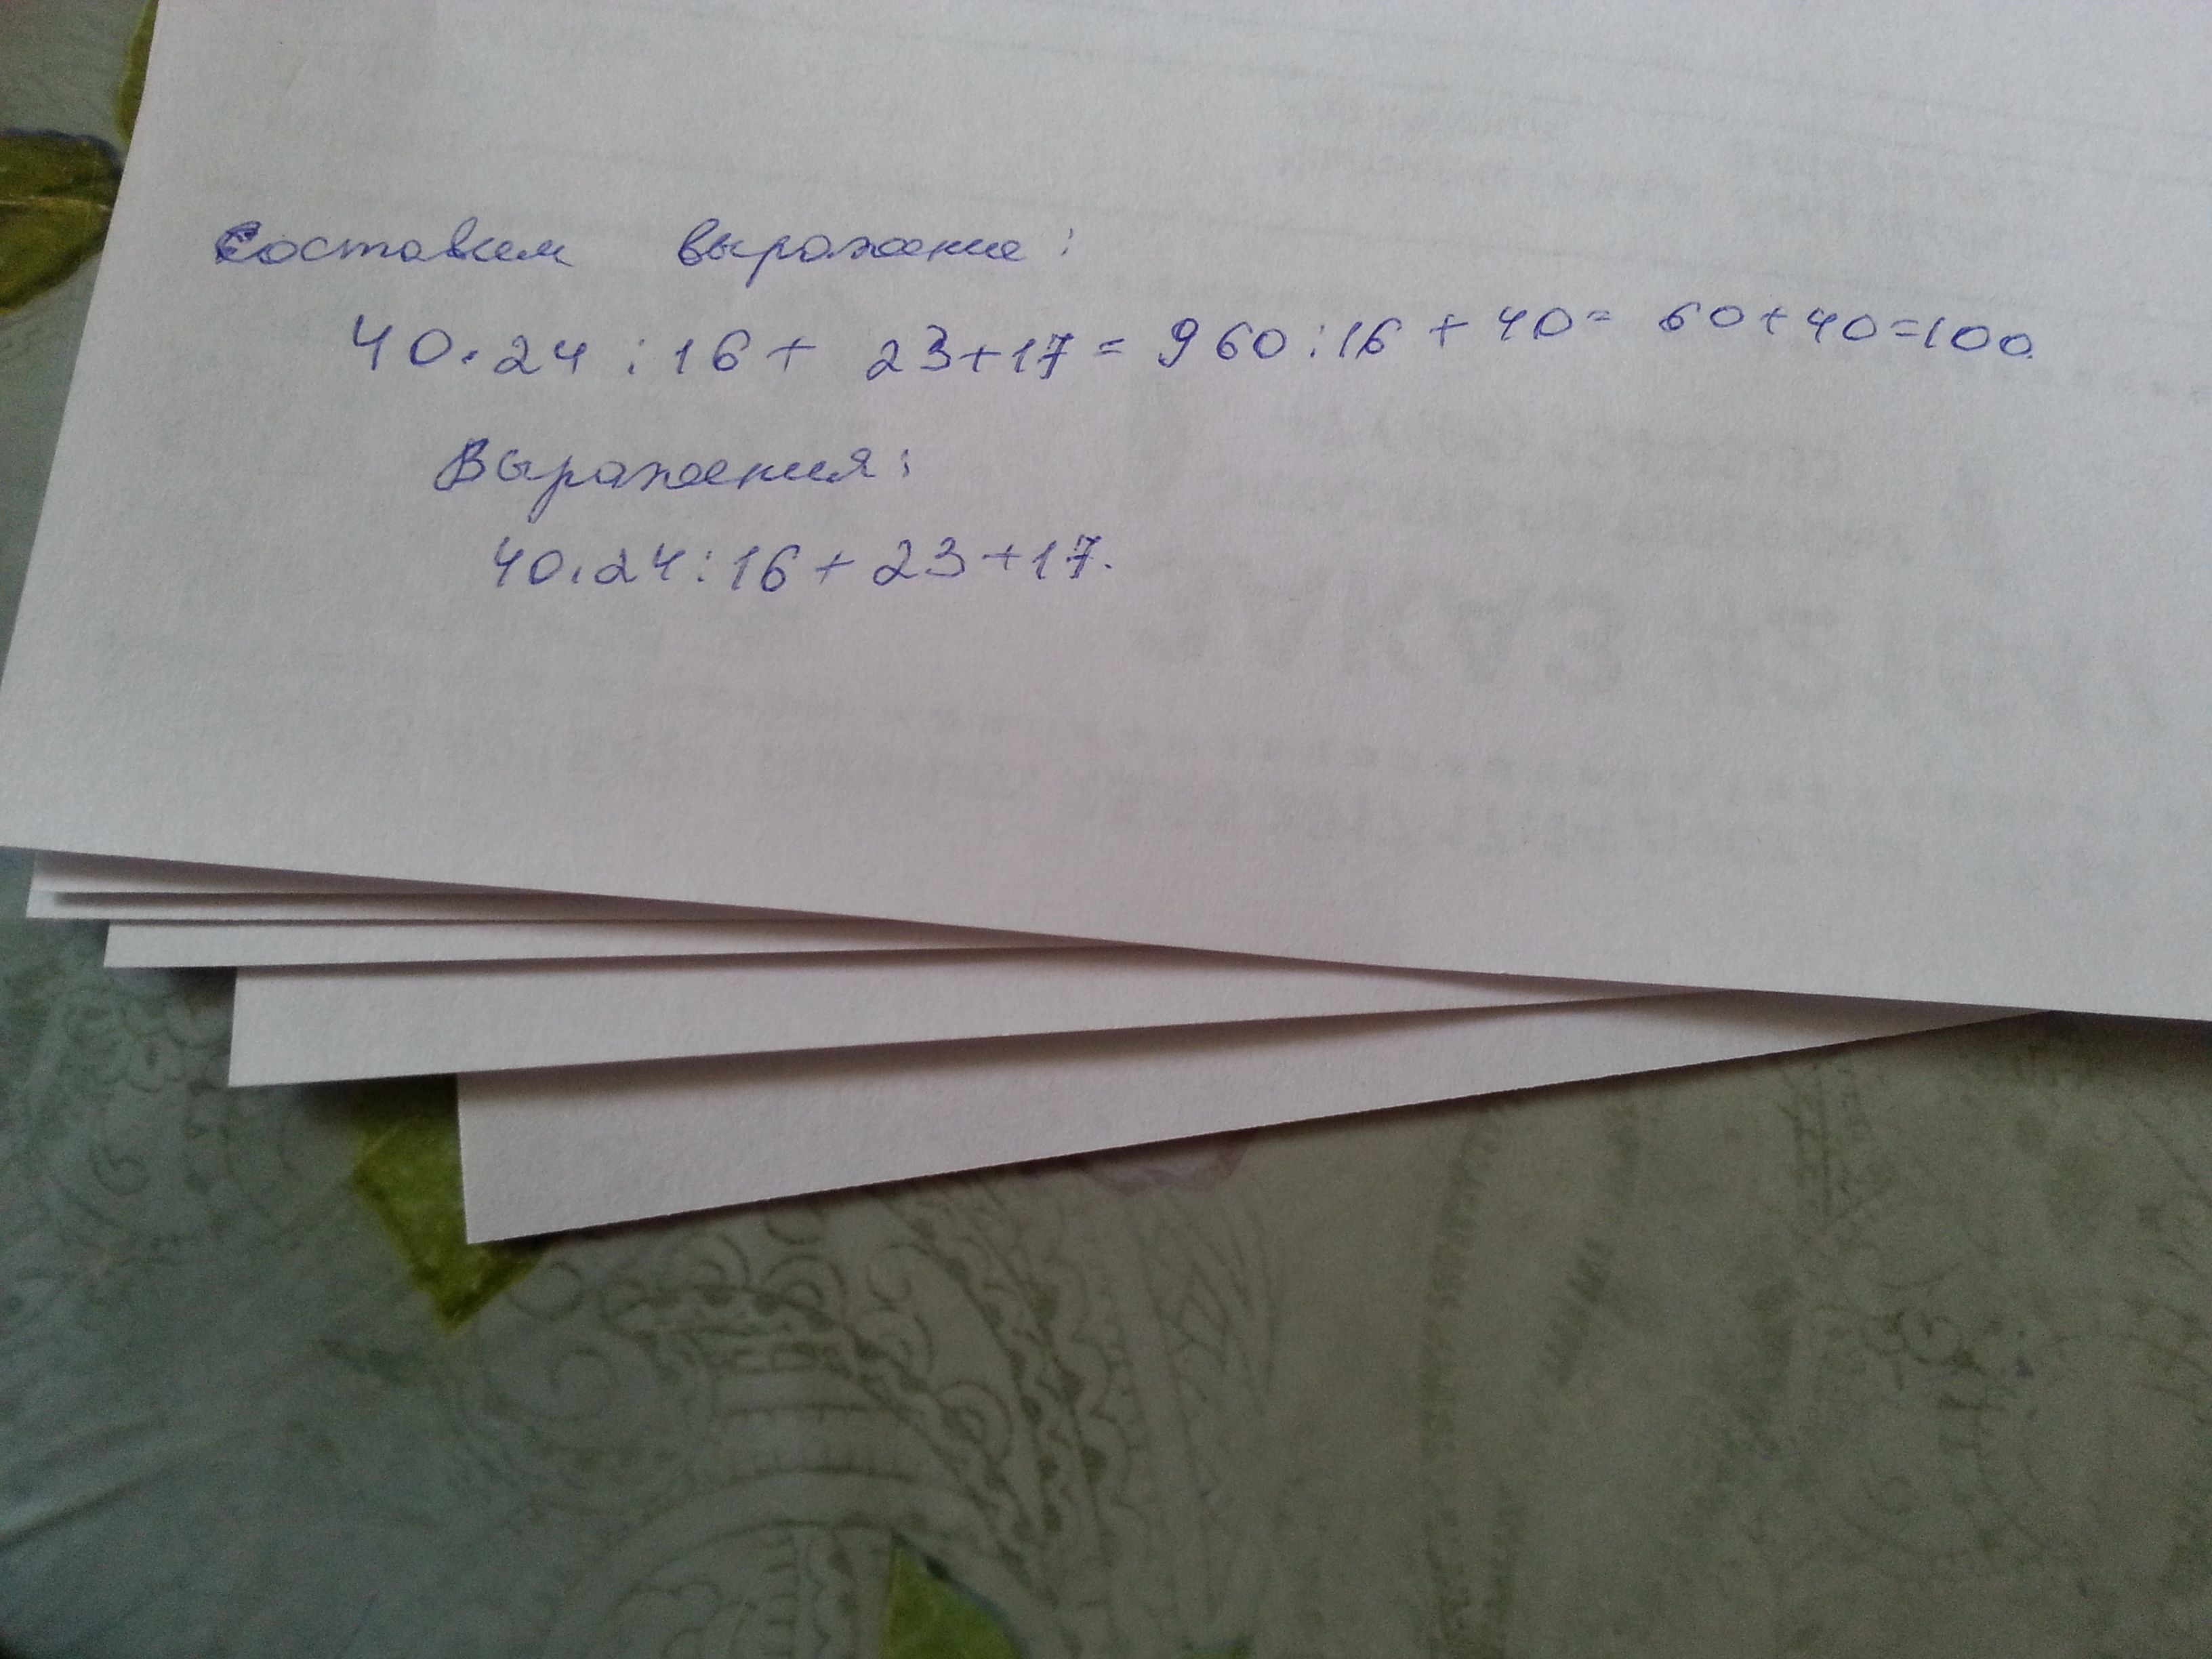 Составим выражение:
40·24:16+ 23+17= 960:16+40= 60+40=100.
Выражения:
40·24:16+23+17.